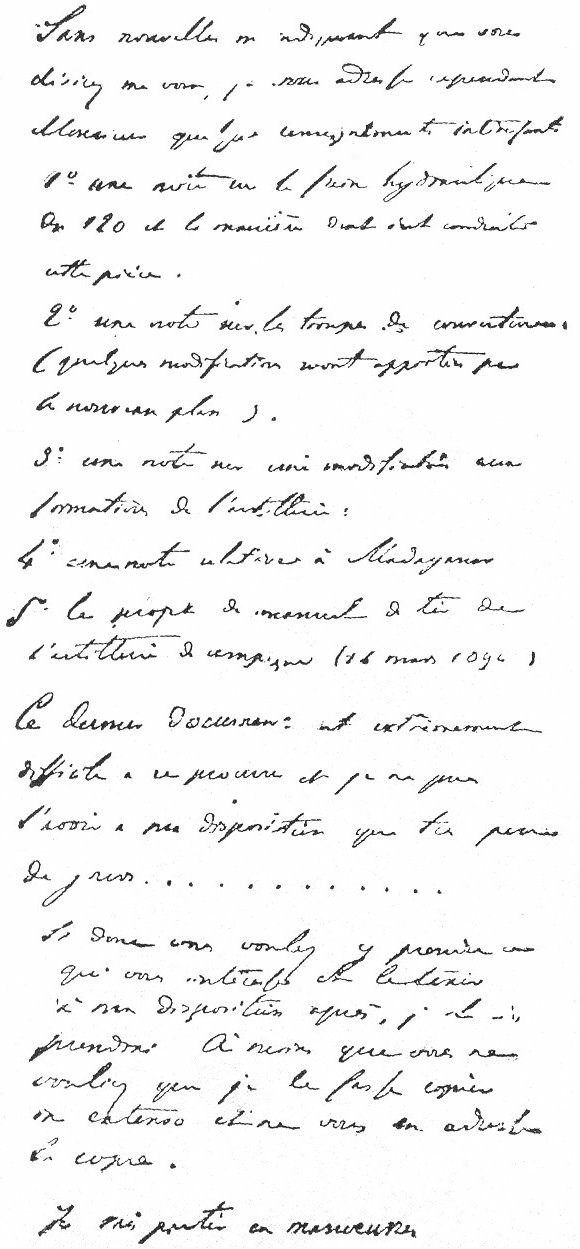 Sans nouvelles m'indiquant que vous
désirez me voir, je vous adresse cependant
Monsieur quelques renseignements intéressants
1º une note sur le frein hydraulique
du 120 et la manière dont s'est conduite
cette pièce.
2º une note sur les troupes de couverture.
(quelques modifications seront apportées par
le nouveau plan).
3º une note sur une modification aux
formations de l'artillerie :
4º une note relative à Madagascar
5º le projet de manuel de tir de
l'artillerie de campagne (14 mars 1894)
Ce dernier document est extrêmement
difficile à se procurer et je ne puis
l'avoir à ma disposition que très peu
de jours. . . . . . . . . . . . .
Si donc vous voulez y prendre ce
qui vous intéresse et le tenir
à ma disposition après, je le
prendrai. À moins que vous ne
vouliez que je le fasse copier
in extenso et ne vous en adresse
la copie.
Je vais partir en manœuvres